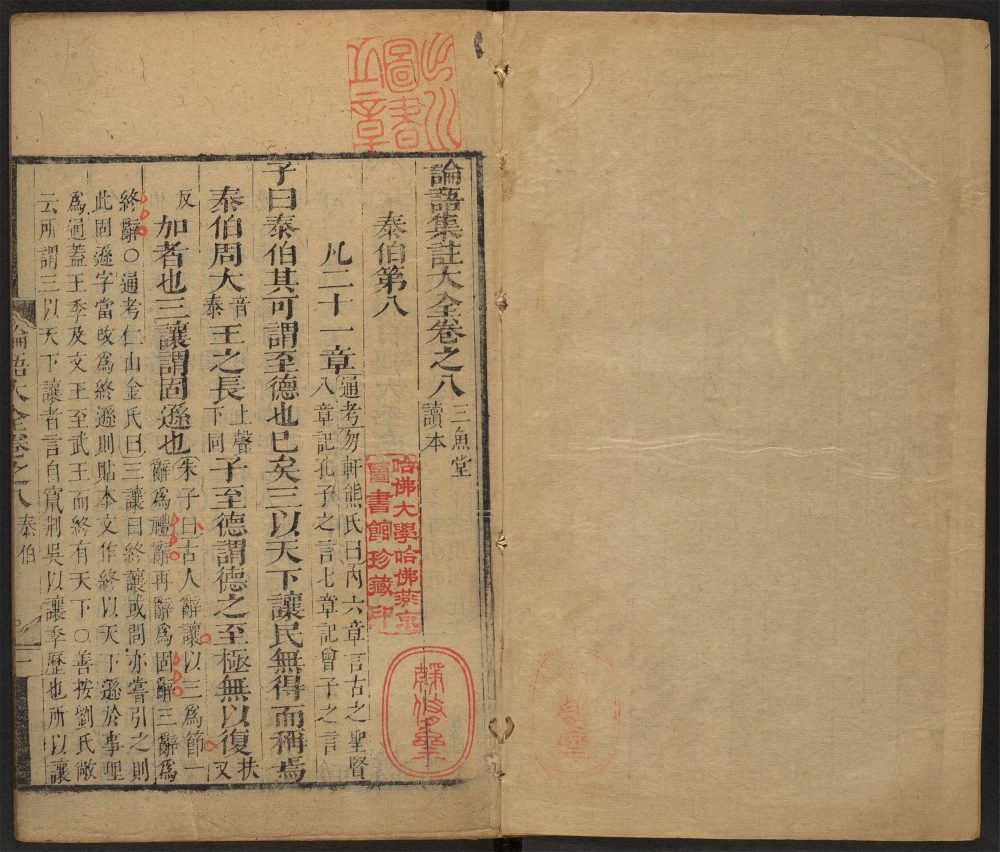 論語集註大全卷之八
三魚堂
讀本
泰伯第八
凡二十一章
通考勿軒熊氏曰內六章言古之聖賢
八章記孔子之言七章記曾子之言
子曰泰伯其可謂至德也已矣三以天下讓民無得而稱焉
泰伯周大
音
泰
王之長
上聲
下同
子至德謂德之至極無以復
扶
又
反
加者也三讓謂固遜也
朱子曰古人辭讓以三爲節一
辭爲禮辭再辭爲固辭三辭爲
終辭○通考仁山金氏曰三讓曰終讓或問亦嘗引之則
此固遜字當改爲終遜則貼本文作終以天下遜於事理
爲通蓋王季及文王至武王而終有天下○善按劉氏敞
云所謂三以天下讓者言自竄荆吳以讓季歷也所以讓
論語大全卷之八
泰伯
一
圖書
之章
哈佛大學哈佛燕京
圖書館珍藏印